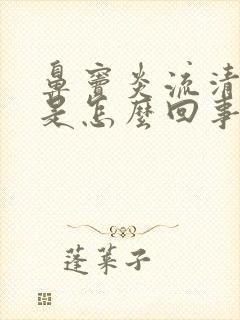 鼻窦炎流清
是怎麼回事
蓬莱子